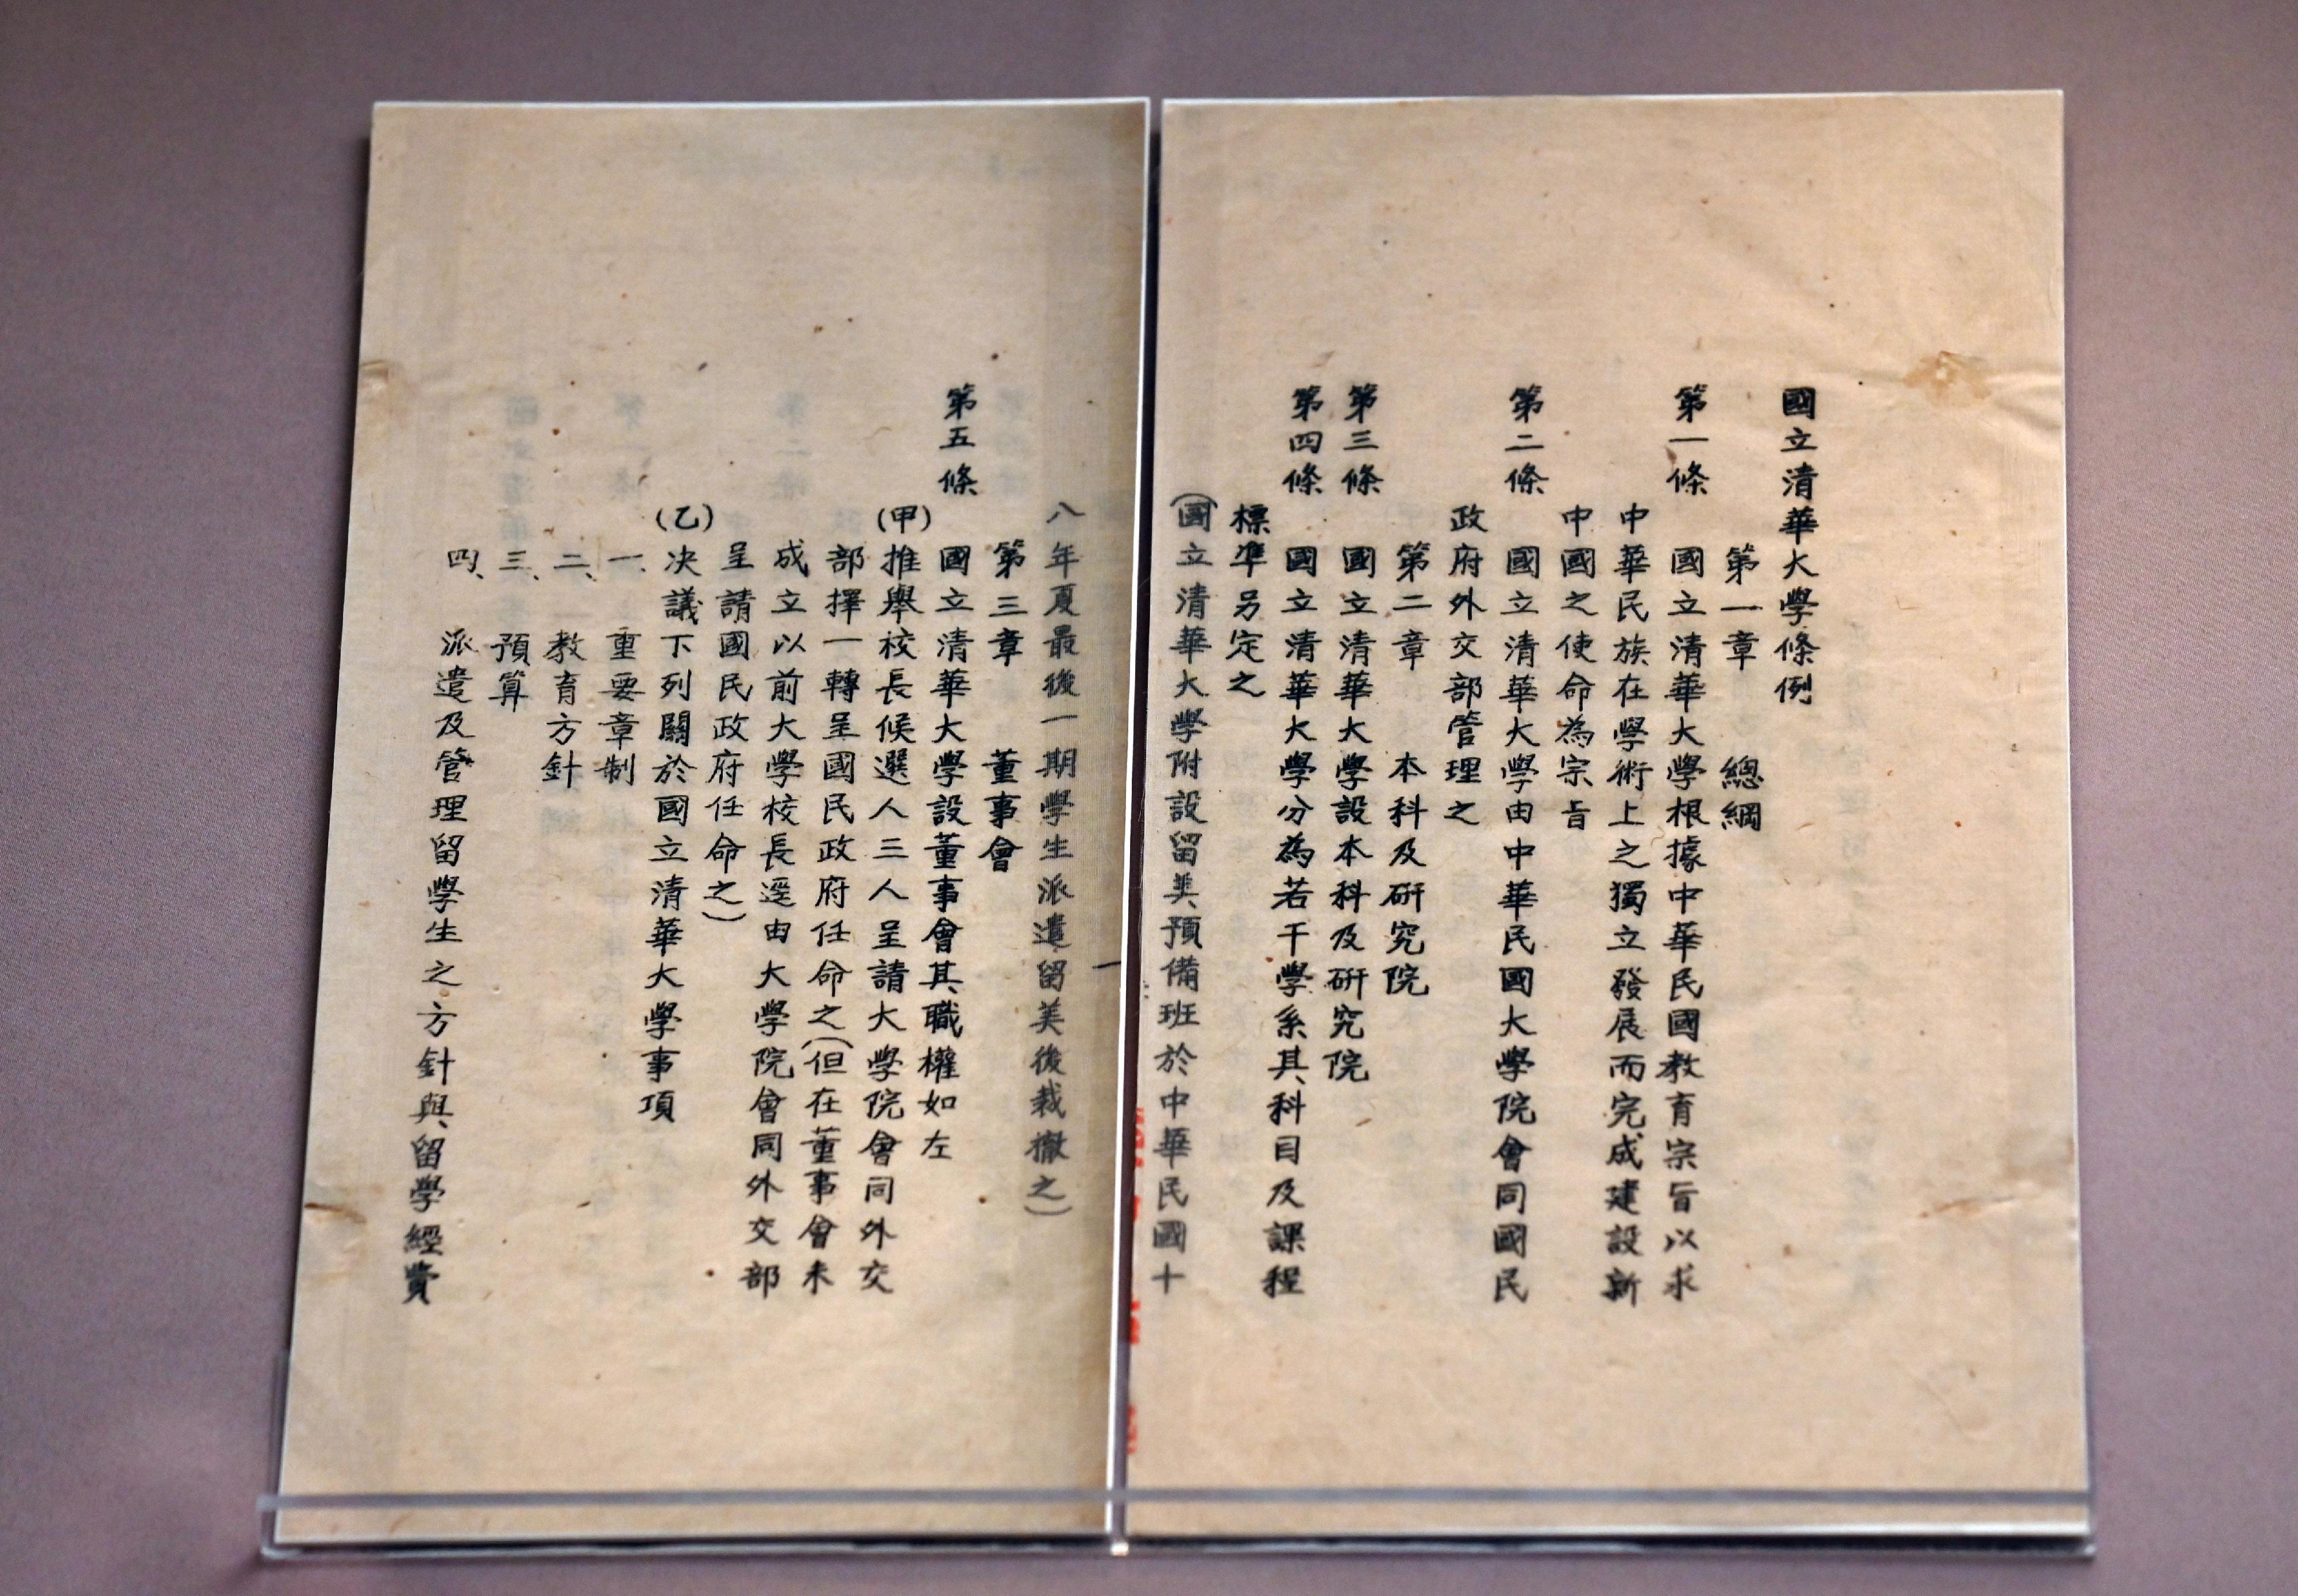 國立清華大學條例
第一章 總綱
第一條 國立清華大學根據中華民國教育宗旨以求
中華民族在學術上之獨立發展而完成建設新
中國之使命為宗旨
第二條 國立清華大學由中華民國大學院會同國民
政府外交部管理之
第二章 本科及研究院
第三條 國立清華大學設本科及研究院
第四條 國立清華大學分為若干學系其科目及課程
標準另定之
(國立清華大學附設留美預備班於中華民國十
八年夏最後一期學生派遣留美後裁撤之)
第三章 董事會
第五條 國立清華大學設董事會其職權如左
(甲)推舉校長候選人三人呈請大學院會同外交
部擇一轉呈國民政府任命之(但在董事會未
成立以前大學校長逕由大學院會同外交部
呈請國民政府任命之)
(乙)決議下列關於國立清華大學事項
一、重要章制
二、教育方針
三、預算
四、派遣及管理留學生之方針與留學經費